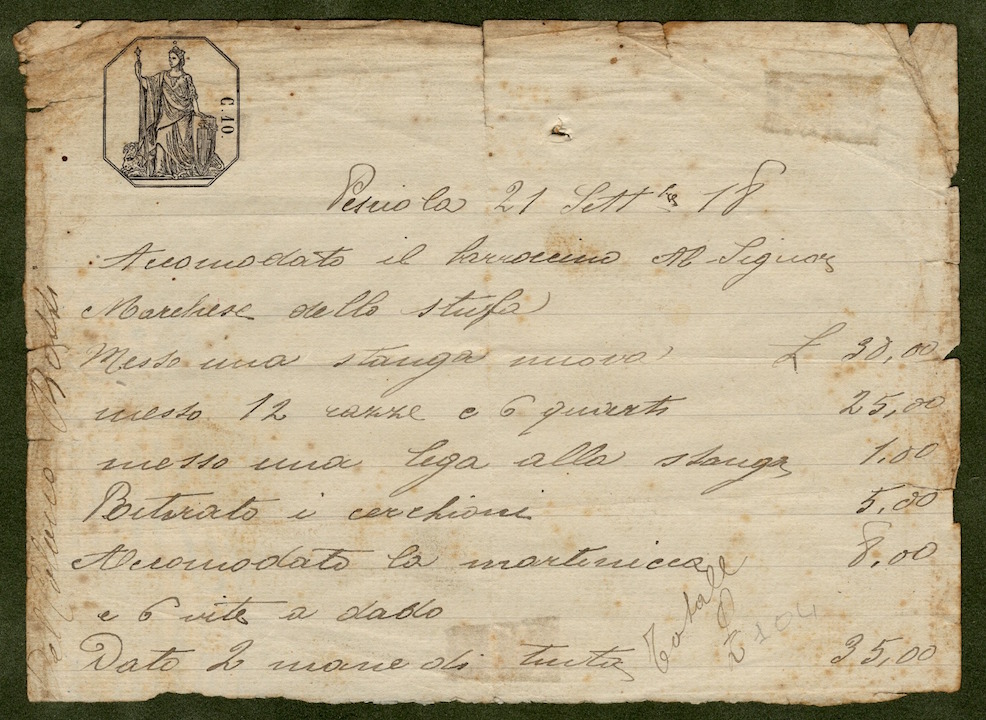 C. 10.
21 Settbre 18
Accomodato il barroccino Al Signor
Marchese della Stufa
Messo una stanga nuova £ 30,00
messo 12 razze e 6 quarti 25,00
messo una lega alla stanga 1,00
Ritirato i cerchioni 5,00
Accomodato la martinicca 8,00
e 6 vite a dado
Dato 2 mane di tinta 35,00
Totale
£ 104